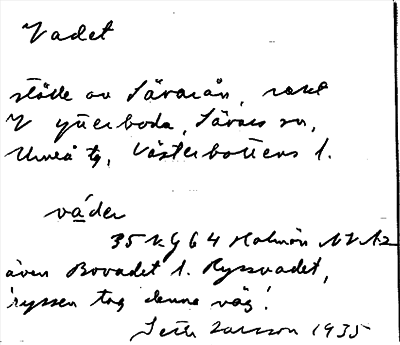 Vadet
ställe av Sävarån, rakt
V Ytterboda, Sävars sn,
Umeå tg, Västerbottens l.
váder
35 Kg 64 Holmön NV
även Bovadet l. Ryssvadet,
ryssen tog denna väg!
Larsson 1935